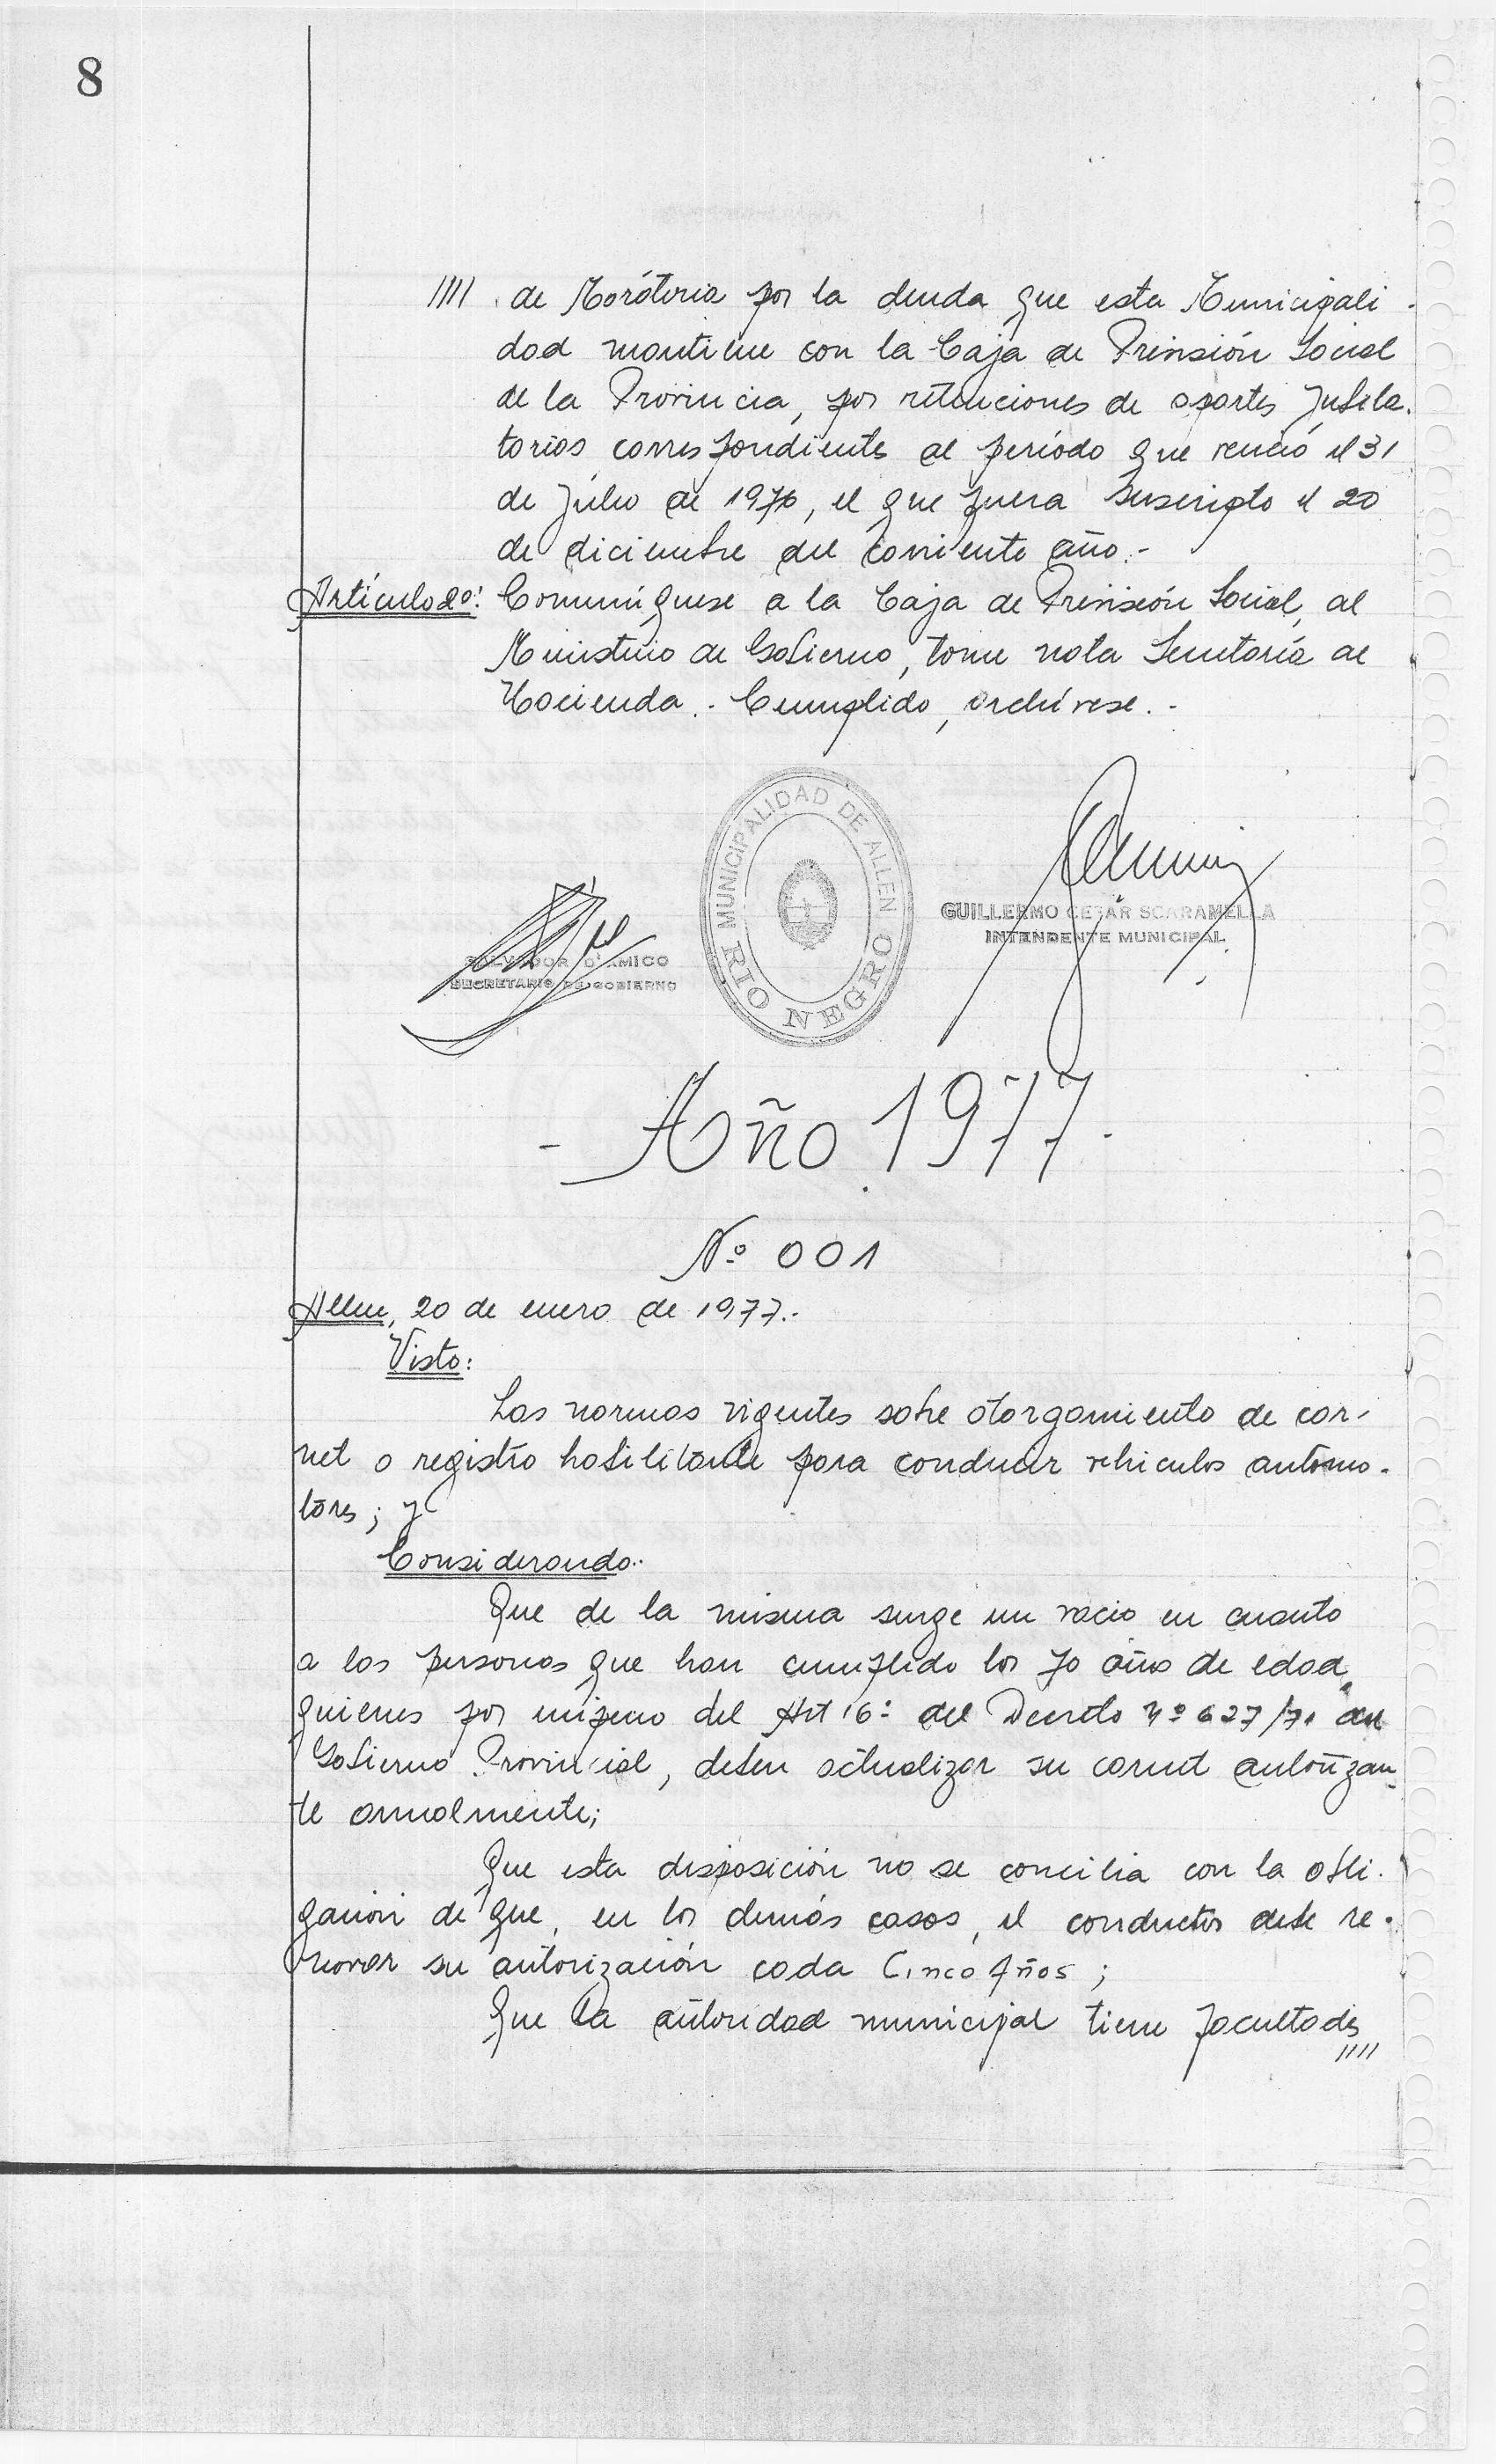 8
//// de Moratoria por la deuda que esta Municipali-
dad mantiene con la Caja de Previsión Social
de la Provincia, por retenciones de aportes Jubila-
torios correspondiente al período que venció el 31
de Julio de 1976, el que fuera suscripto el 20
de diciembre del corriente año.-
Artículo 2º: Comuníquese a la Caja de Previsión Social, al
Ministerio de Gobierno, tome nota Secretaría de
Hacienda.- Cumplido, archívese.-
MUNICIPALIDAD DE ALLEN
RIO NEGRO
GUILLERMO CESAR SCARAMELLA
INTENDENTE MUNICIPAL
SALVADOR D'AMICO
SECRETARIO DE GOBIERNO
- Año 1977-
Nº 001
Allen, 20 de enero de 1977.-
Visto:
Las normas vigentes sobre otorgamiento de car-
net o registro habilitante para conducir vehiculos automo-
tores; y
Considerando:
Que de la misma surge un vacio en cuanto
a las personas que han cumplido los 70 años de edad,
quienes por imperio del Art 16º del Decreto Nº 627/71 del
Gobierno Provincial, deben actualizar su carnet autorizan-
te anualmente;
Que esta disposición no se concilia con la obli-
gación de que, en los demás casos, el conductor debe re-
novar su autorización cada Cinco Años;
Que la autoridad municipal tiene facultades
////